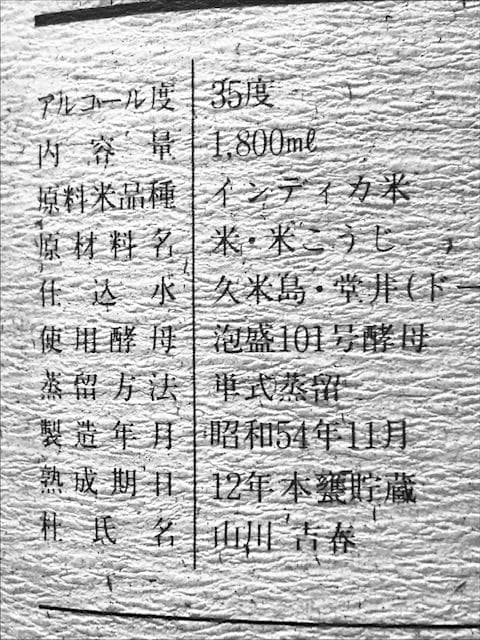 アルコール度 35度
内容量 1,800ml
原料米品種 インディカ米
原材料名 米・米こうじ
仕込水 久米島・堂井(ドー
使用酵母 泡盛101号酵母
蒸留方法 単式蒸留
製造年月 昭和54年11月
熟成期日 12年本甕貯蔵
杜氏名 山川 古春